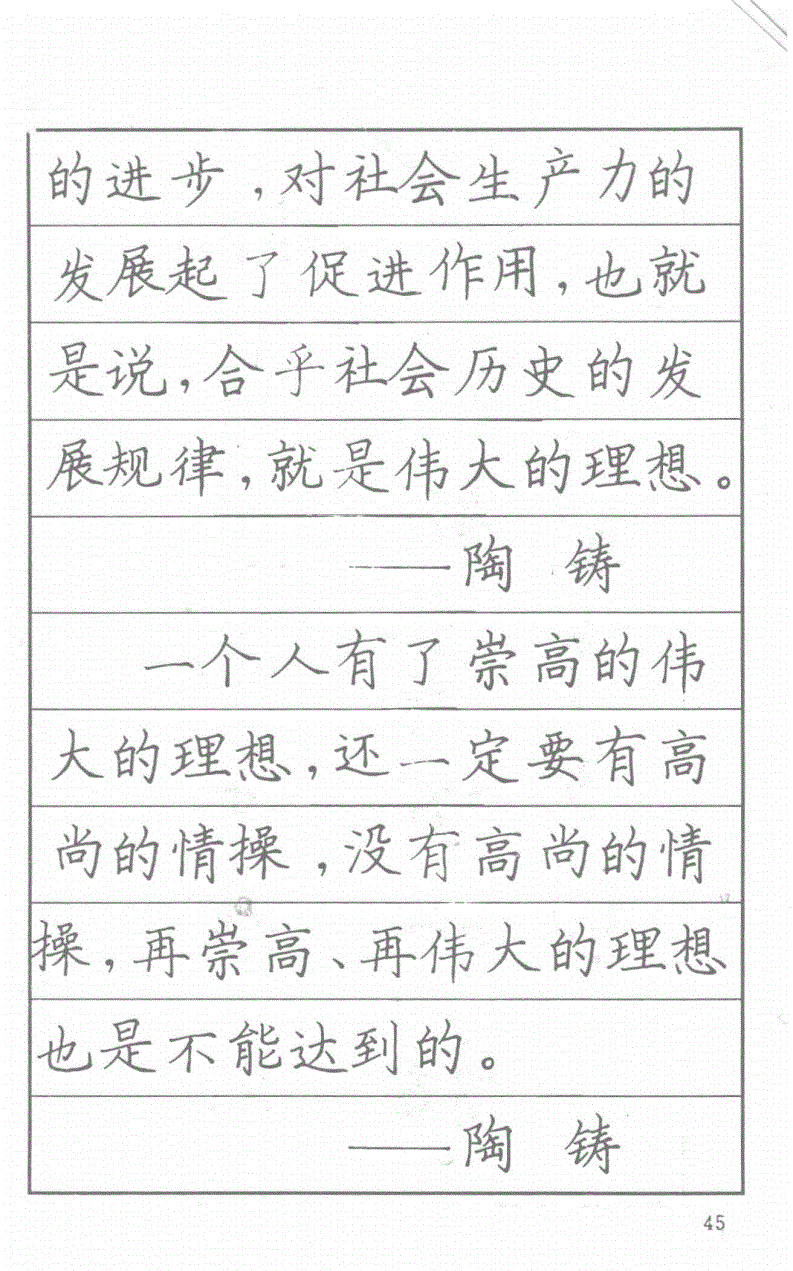 的进步,对社会生产力的
发展起了促进作用,也就
是说,合乎社会历史的发
展规律,就是伟大的理想。
——陶 铸
一个人有了崇高的伟
大的理想,还一定要有高
尚的情操,没有高尚的情
操,再崇高、再伟大的理想
也是不能达到的。
——陶 铸
45